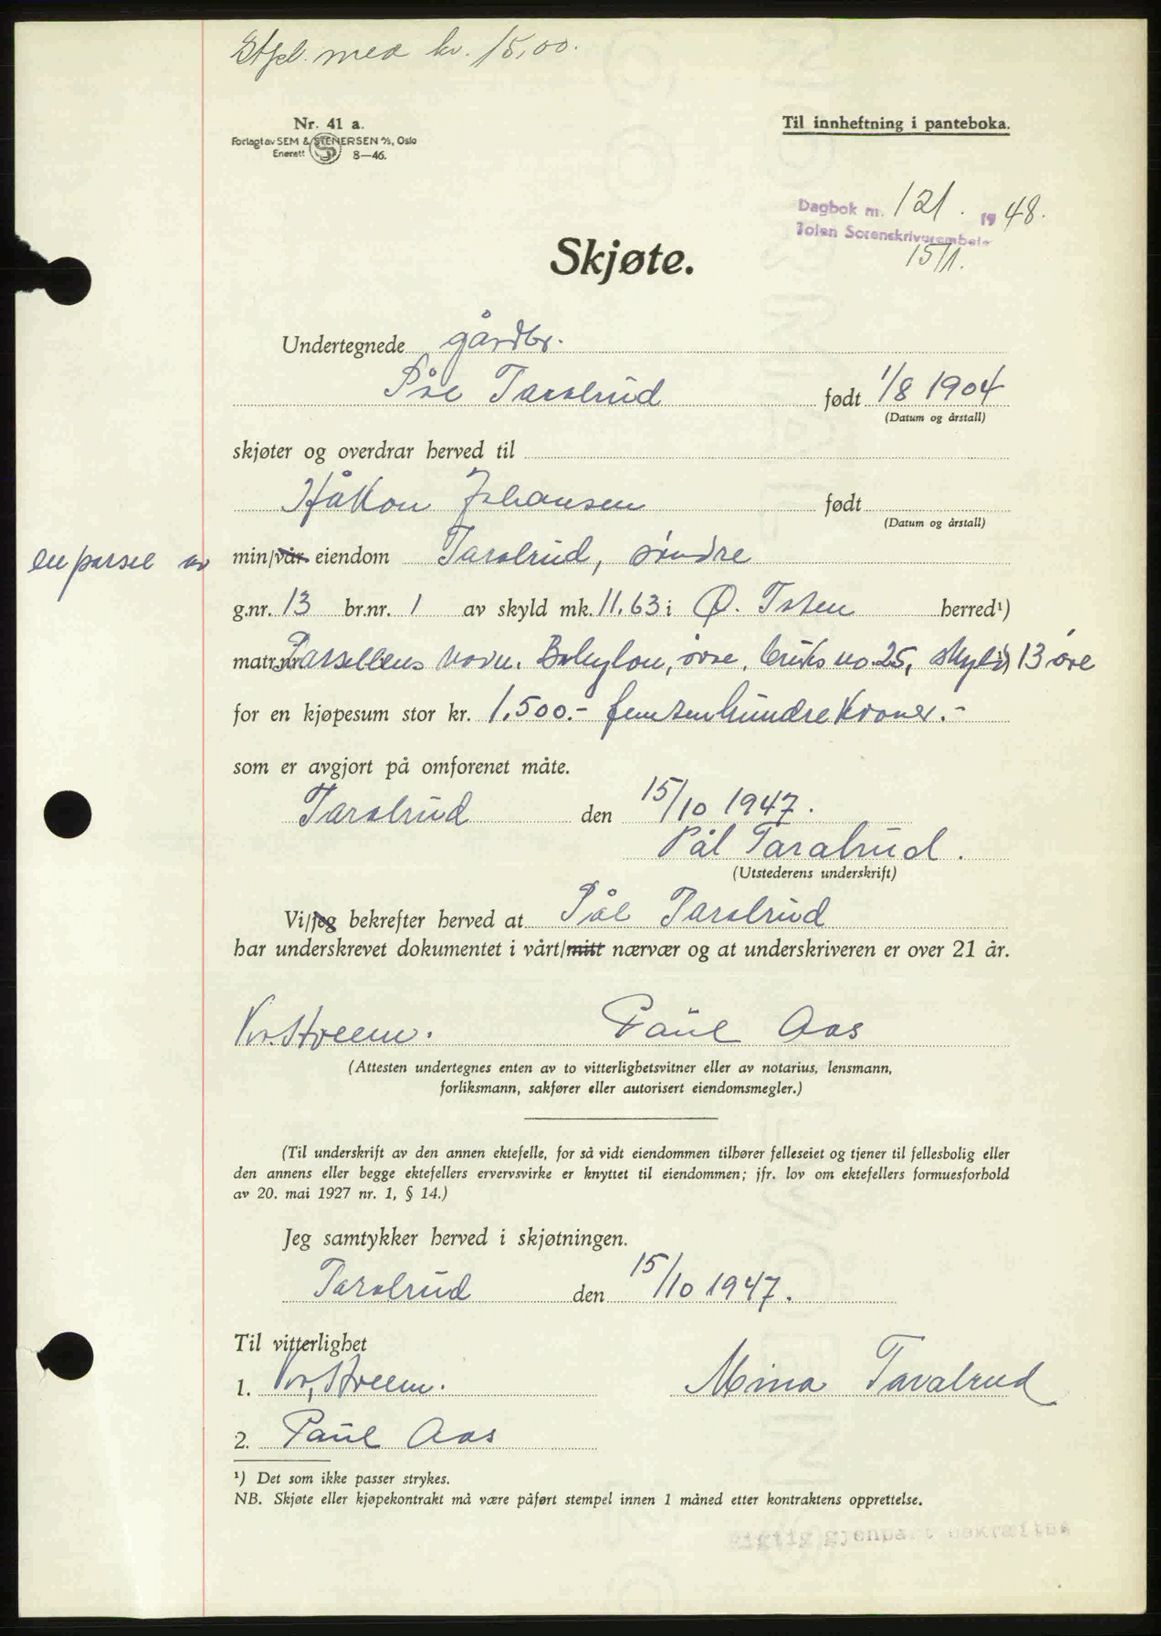 Stpl. med kr. 15,00.
Nr. 41 a.
Forlagt av SEM & STENERSEN A/S, Oslo
Enerett 8—46.
Til innheftning i panteboka.
Dagbok nr. 121. 1948.
Toten Sorenskriverembete
15/1.
Skjøte.
Undertegnede gårdbr.
Pål Taralrud født 1/8 1904
(Datum og årstall)
skjøter og overdrar herved til
Håkon Johansen født
(Datum og årstall)
en parsel av min/vår eiendom Taralrud, søndre
g.nr. 13 br.nr. 1 av skyld mk. 11,63 i Ø. Toten herred¹)
matr.nr. Parsellens navn. Babylon, øvre, bruks no. 25, skyld 13 øre
for en kjøpesum stor kr. 1.500.- femtenhundre kroner.-
som er avgjort på omforenet måte.
Taralrud den 15/10 1947.
Pål Taralrud.
(Utstederens underskrift)
Vi/jeg bekrefter herved at Pål Taralrud
har underskrevet dokumentet i vårt/mitt nærvær og at underskriveren er over 21 år.
Paul Aas
(Attesten undertegnes enten av to vitterlighetsvitner eller av notarius, lensmann,
forliksmann, sakfører eller autorisert eiendomsmegler.)
(Til underskrift av den annen ektefelle, for så vidt eiendommen tilhører felleseiet og tjener til fellesbolig eller
den annens eller begge ektefellers ervervsvirke er knyttet til eiendommen; jfr. lov om ektefellers formuesforhold
av 20. mai 1927 nr. 1, § 14.)
Jeg samtykker herved i skjøtningen.
Taralrud den 15/10 1947.
Til vitterlighet
1. Mina Taralrud
2. Paul Aas
¹) Det som ikke passer strykes.
NB. Skjøte eller kjøpekontrakt må være påført stempel innen 1 måned etter kontraktens opprettelse.
Rigtig gjenpart bekræftes